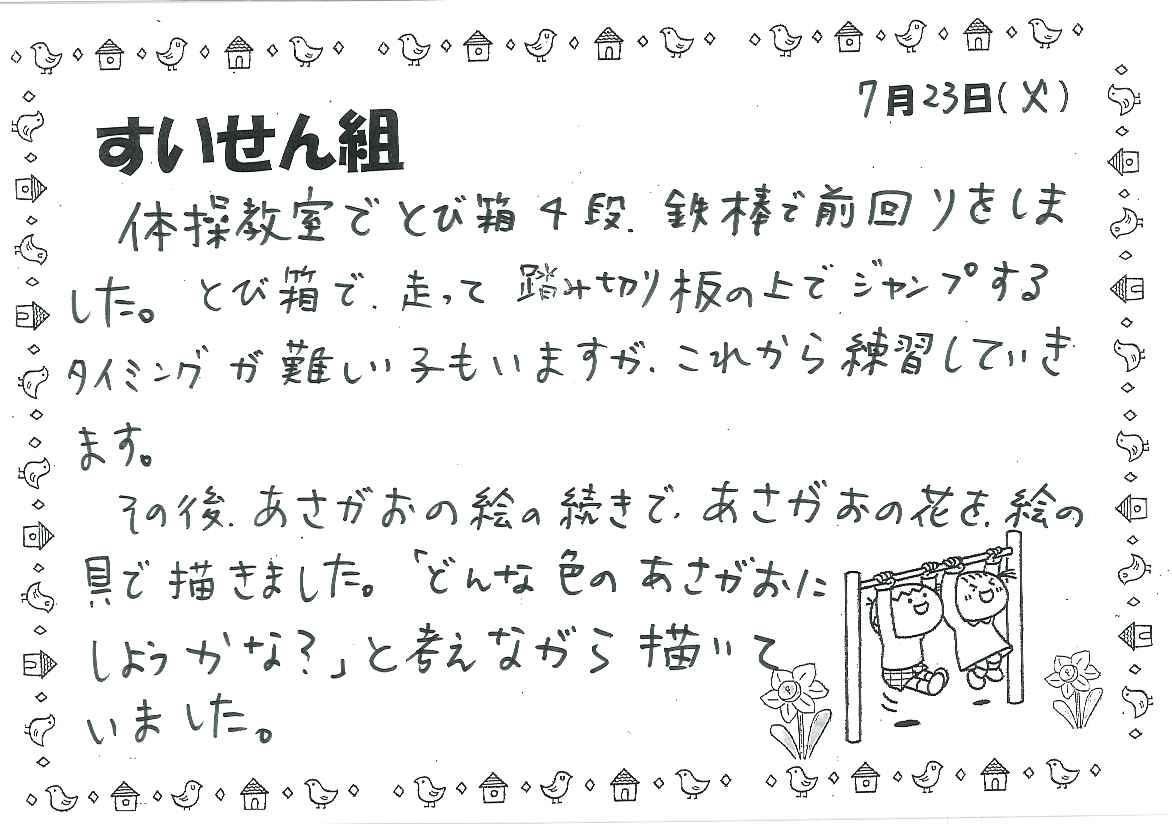 7月23日(火)
すいせん組
体操教室でとび箱4段、鉄棒で前回りをしま
した。とび箱で、走って踏み切り板の上でジャンプする
タイミングが難しい子もいますが、これから練習していき
ます。
その後、あさがおの絵の続きで、あさがおの花を、絵の
具で描きました。「どんな色のあさがおに
しようかな?」と考えながら描いて
いました。